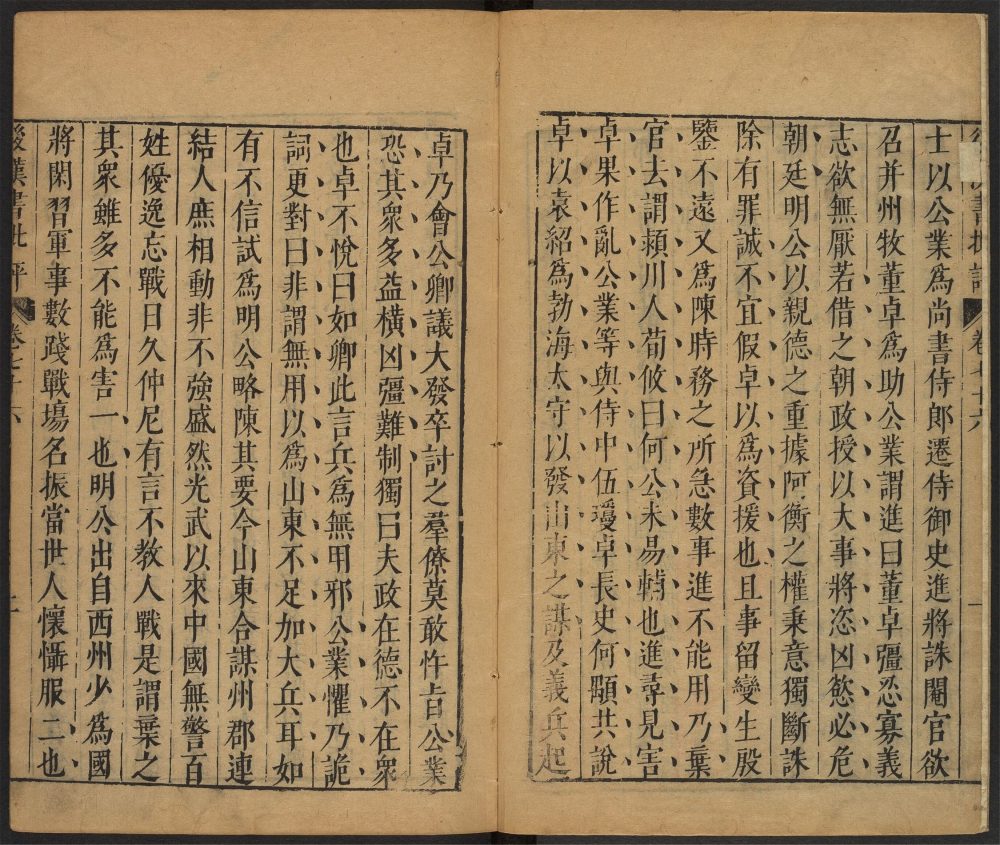 書批評 卷七十六 一
士以公業爲尚書侍郎遷侍御史進將誅閹官欲
召并州牧董卓爲助公業謂進曰董卓彊忍寡義
志欲無厭若借之朝政授以大事將恣凶慾必危
朝廷明公以親德之重據阿衡之權秉意獨斷誅
除有罪誠不宜假卓以爲資援也且事留變生殷
鑒不遠又爲陳時務之所急數事進不能用乃棄
官去謂潁川人荀攸曰何公未易輔也進尋見害
卓果作亂公業等與侍中伍瓊卓長史何顒共說
卓以袁紹爲勃海太守以發山東之謀及義兵起
卓乃會公卿議大發卒討之羣僚莫敢忤旨公業
恐其衆多益橫凶彊難制獨曰夫政在德不在衆
也卓不悅曰如卿此言兵爲無用邪公業懼乃詭
詞更對曰非謂無用以爲山東不足加大兵耳如
有不信試爲明公略陳其要今山東合謀州郡連
結人庶相動非不強盛然光武以來中國無警百
姓優逸忘戰日久仲尼有言不教人戰是謂棄之
其衆雖多不能爲害一也明公出自西州少爲國
將閑習軍事數踐戰塲名振當世人懷懾服二也
後漢書批評 卷七十六